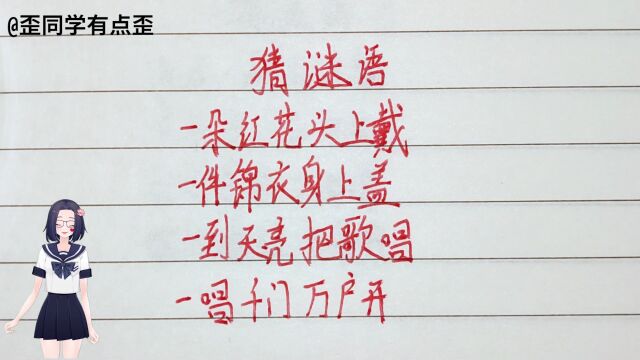 @歪同学有点歪
猜谜语
一朵红花头上戴
一件锦衣身上盖
一到天亮把歌唱
一唱千门万户开